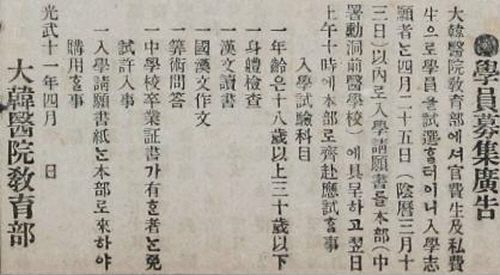 ◉學員募集廣告
大韓醫院敎育部에셔官費生及私費
生으로學員을試選홀터이니入學志
願者는四月二十五日(陰曆三月十
三日)以內로入學請願書를本部(中
署動洞前醫學校)에具呈하고翌日
上午十時에本部로齊赴應試홀事
入學試驗科目
一年齡은十八歲以上三十歲以下
一身體檢査
一漢文讀書
一國漢文作文
一算術問答
一中學校卒業証書가有호者는免
試許入事
一入學請願書紙는本部로來하야
購用홀事
光武十一年四月 日
大韓醫院敎育部